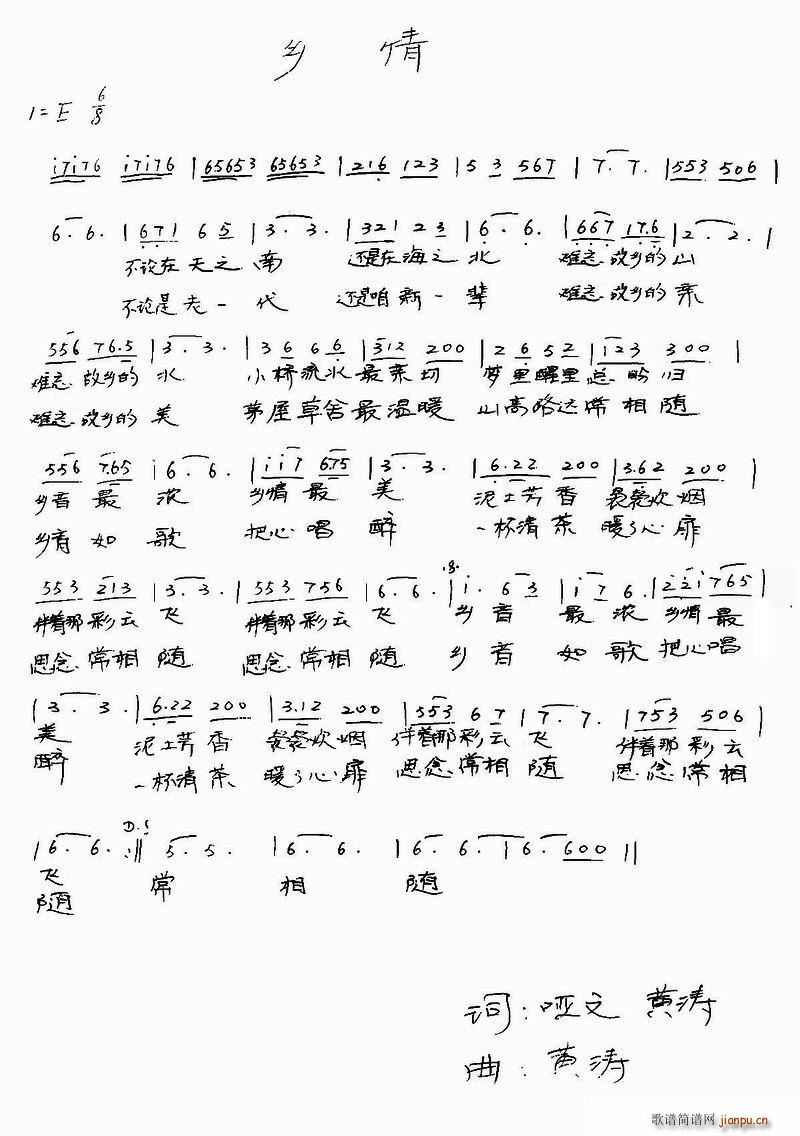 乡 情
1=E 6/8
i7i76 i7i76 | 65653 65653 | 216 123 | 5 3 567 | 7. 7. | 553 506 |
6. 6. | 671 65 | 3. 3. | 321 23 | 6. 6. | 667 17.6 | 2. 2. |
不论在天之南 还是在海之北 难忘故乡的山
不论是老一代 还是咱新一辈 难忘故乡的亲
556 76.5 | 3. 3. | 36 66 | 312 200 | 26 52 | i23 300 |
难忘故乡的水 小桥流水最亲切 梦里醒里总盼归
难忘故乡的美 茅屋草舍最温暖 山高路远常相随
556 7.65 | 6. 6. | ii7 6.75 | 3. 3. | 6.22 200 | 3.62 200 |
乡音最浓 乡情最美 泥土芳香 袅袅炊烟
乡音如歌 把心唱醉 一杯清茶 暖了心扉
553 213 | 3. 3. | 553 756 | 6. 6. | i. 63 | i7 6. | 22i 765 |
伴着那彩云飞 伴着那彩云飞 乡音最浓 乡情最
思念常相随 思念常相随 乡音如歌 把心唱
| 3. 3. | 6.22 200 | 3.12 200 | 553 67 | 7. 7. | 753 506 |
美 泥土芳香 袅袅炊烟 伴着那彩云飞 伴着那彩云
醉 一杯清茶 暖了心扉 思念常相随 思念常相
D.S
| 6. 6. :|| 5. 5. | 6. 6. | 6. 6. | 6. 600 ||
飞 常 相 随
随
词：哑文 黄涛
曲：黄涛
歌谱简谱网 jianpu.cn